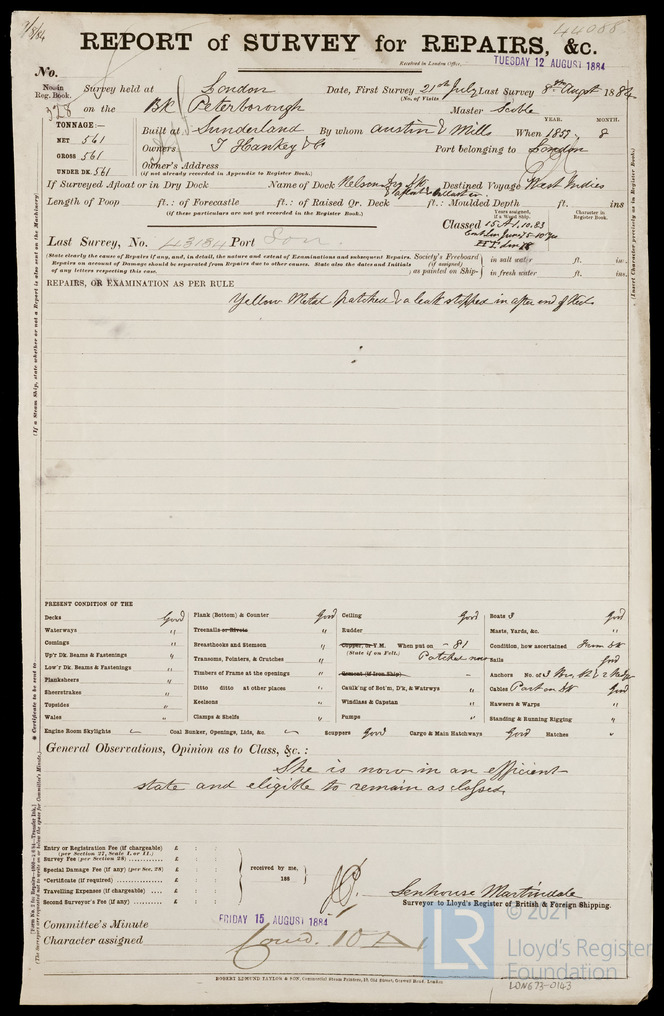 7/8/84
44008
REPORT of SURVEY for REPAIRS, &c.
Received in London Office,
TUESDAY 12 AUGUST 1884
No.
No. in Reg. Book.
328
Survey held at London Date, First Survey 21st July Last Survey 8th Augst 1884
(No. of Visits
on the BK Peterborough Master Scoble
TONNAGE:—
NET 561
GROSS 561
UNDER DK. 561
YEAR. MONTH.
Built at Sunderland By whom Austin & Mills When 1857 8
Owners T Hankey & Co Port belonging to London
Owner's Address
(if not already recorded in Appendix to Register Book.)
If Surveyed Afloat or in Dry Dock Name of Dock Nelson Dry Dk Destined Voyage West Indies
Length of Poop ft.: of Forecastle ft.: of Raised Qr. Deck ft.: Moulded Depth ft. ins
(if these particulars are not yet recorded in the Register Book.)
Years assigned, if a Wood Ship.
Character in Register Book.
Classed 15 A1.10.83
Last Survey, No. 43184 Port Lon.
(State clearly the cause of Repairs if any, and, in detail, the nature and extent of Examinations and subsequent Repairs.
Repairs on account of Damage should be separated from Repairs due to other causes. State also the dates and Initials
of any letters respecting this case.
Society's Freeboard (if assigned) as painted on Ship-
in salt water ft. in.
in fresh water ft. ins.
REPAIRS, OR EXAMINATION AS PER RULE
Yellow Metal patched & a leak stopped in after end of Keel
PRESENT CONDITION OF THE
Decks Good
Waterways "
Comings "
Up'r Dk. Beams & Fastenings "
Low'r Dk. Beams & Fastenings "
Planksheers "
Sheerstrakes "
Topsides "
Wales "
Engine Room Skylights
Plank (Bottom) & Counter Good
Treenails or Rivets "
Breasthooks and Stemson "
Transoms, Pointers, & Crutches "
Timbers of Frame at the openings "
Ditto ditto at other places "
Keelsons "
Clamps & Shelfs "
Coal Bunker, Openings, Lids, &c.
Ceiling Good
Rudder "
Copper, or Y.M. When put on - 81
(State if on Felt.) Patched now
Cement (if Iron Ship) -
Caulk'ng of Bot'm, D'k, & Watrwys "
Windlass & Capstan "
Pumps "
Scuppers Good Cargo & Main Hatchways Good Hatches "
Boats 3 Good
Masts, Yards, &c. "
Condition, how ascertained From Dk
Sails Good
Anchors No. of
Cables Part on Dk Good
Hawsers & Warps "
Standing & Running Rigging "
General Observations, Opinion as to Class, &c.:
She is now in an efficient
state and eligible to remain as classed,
Entry or Registration Fee (if chargeable) £ : :
(per Section 27, Scale I. or II.)
Survey Fee (per Section 28) £ : :
Special Damage Fee (if any) (per Sec. 28) £ : :
*Certificate (if required) £ : :
Travelling Expenses (if chargeable) £ : :
Second Surveyor's Fee (if any) £ : :
received by me,
188
Senhouse Martindale
Surveyor to Lloyd's Register of British & Foreign Shipping.
Committee's Minute
FRIDAY 15 AUGUST 1884
Character assigned
ROBERT EDMUND TAYLOR & SON, Commercial Steam Printers, 19, Old Street, Goswell Road, London
© 2021
LR
Lloyd's Register
Foundation
LON673-0143
(If a Steam Ship, state whether or not a Report is also sent on the Machinery)
* Certificate to be sent to
(Insert Character precisely as in Register Book.)